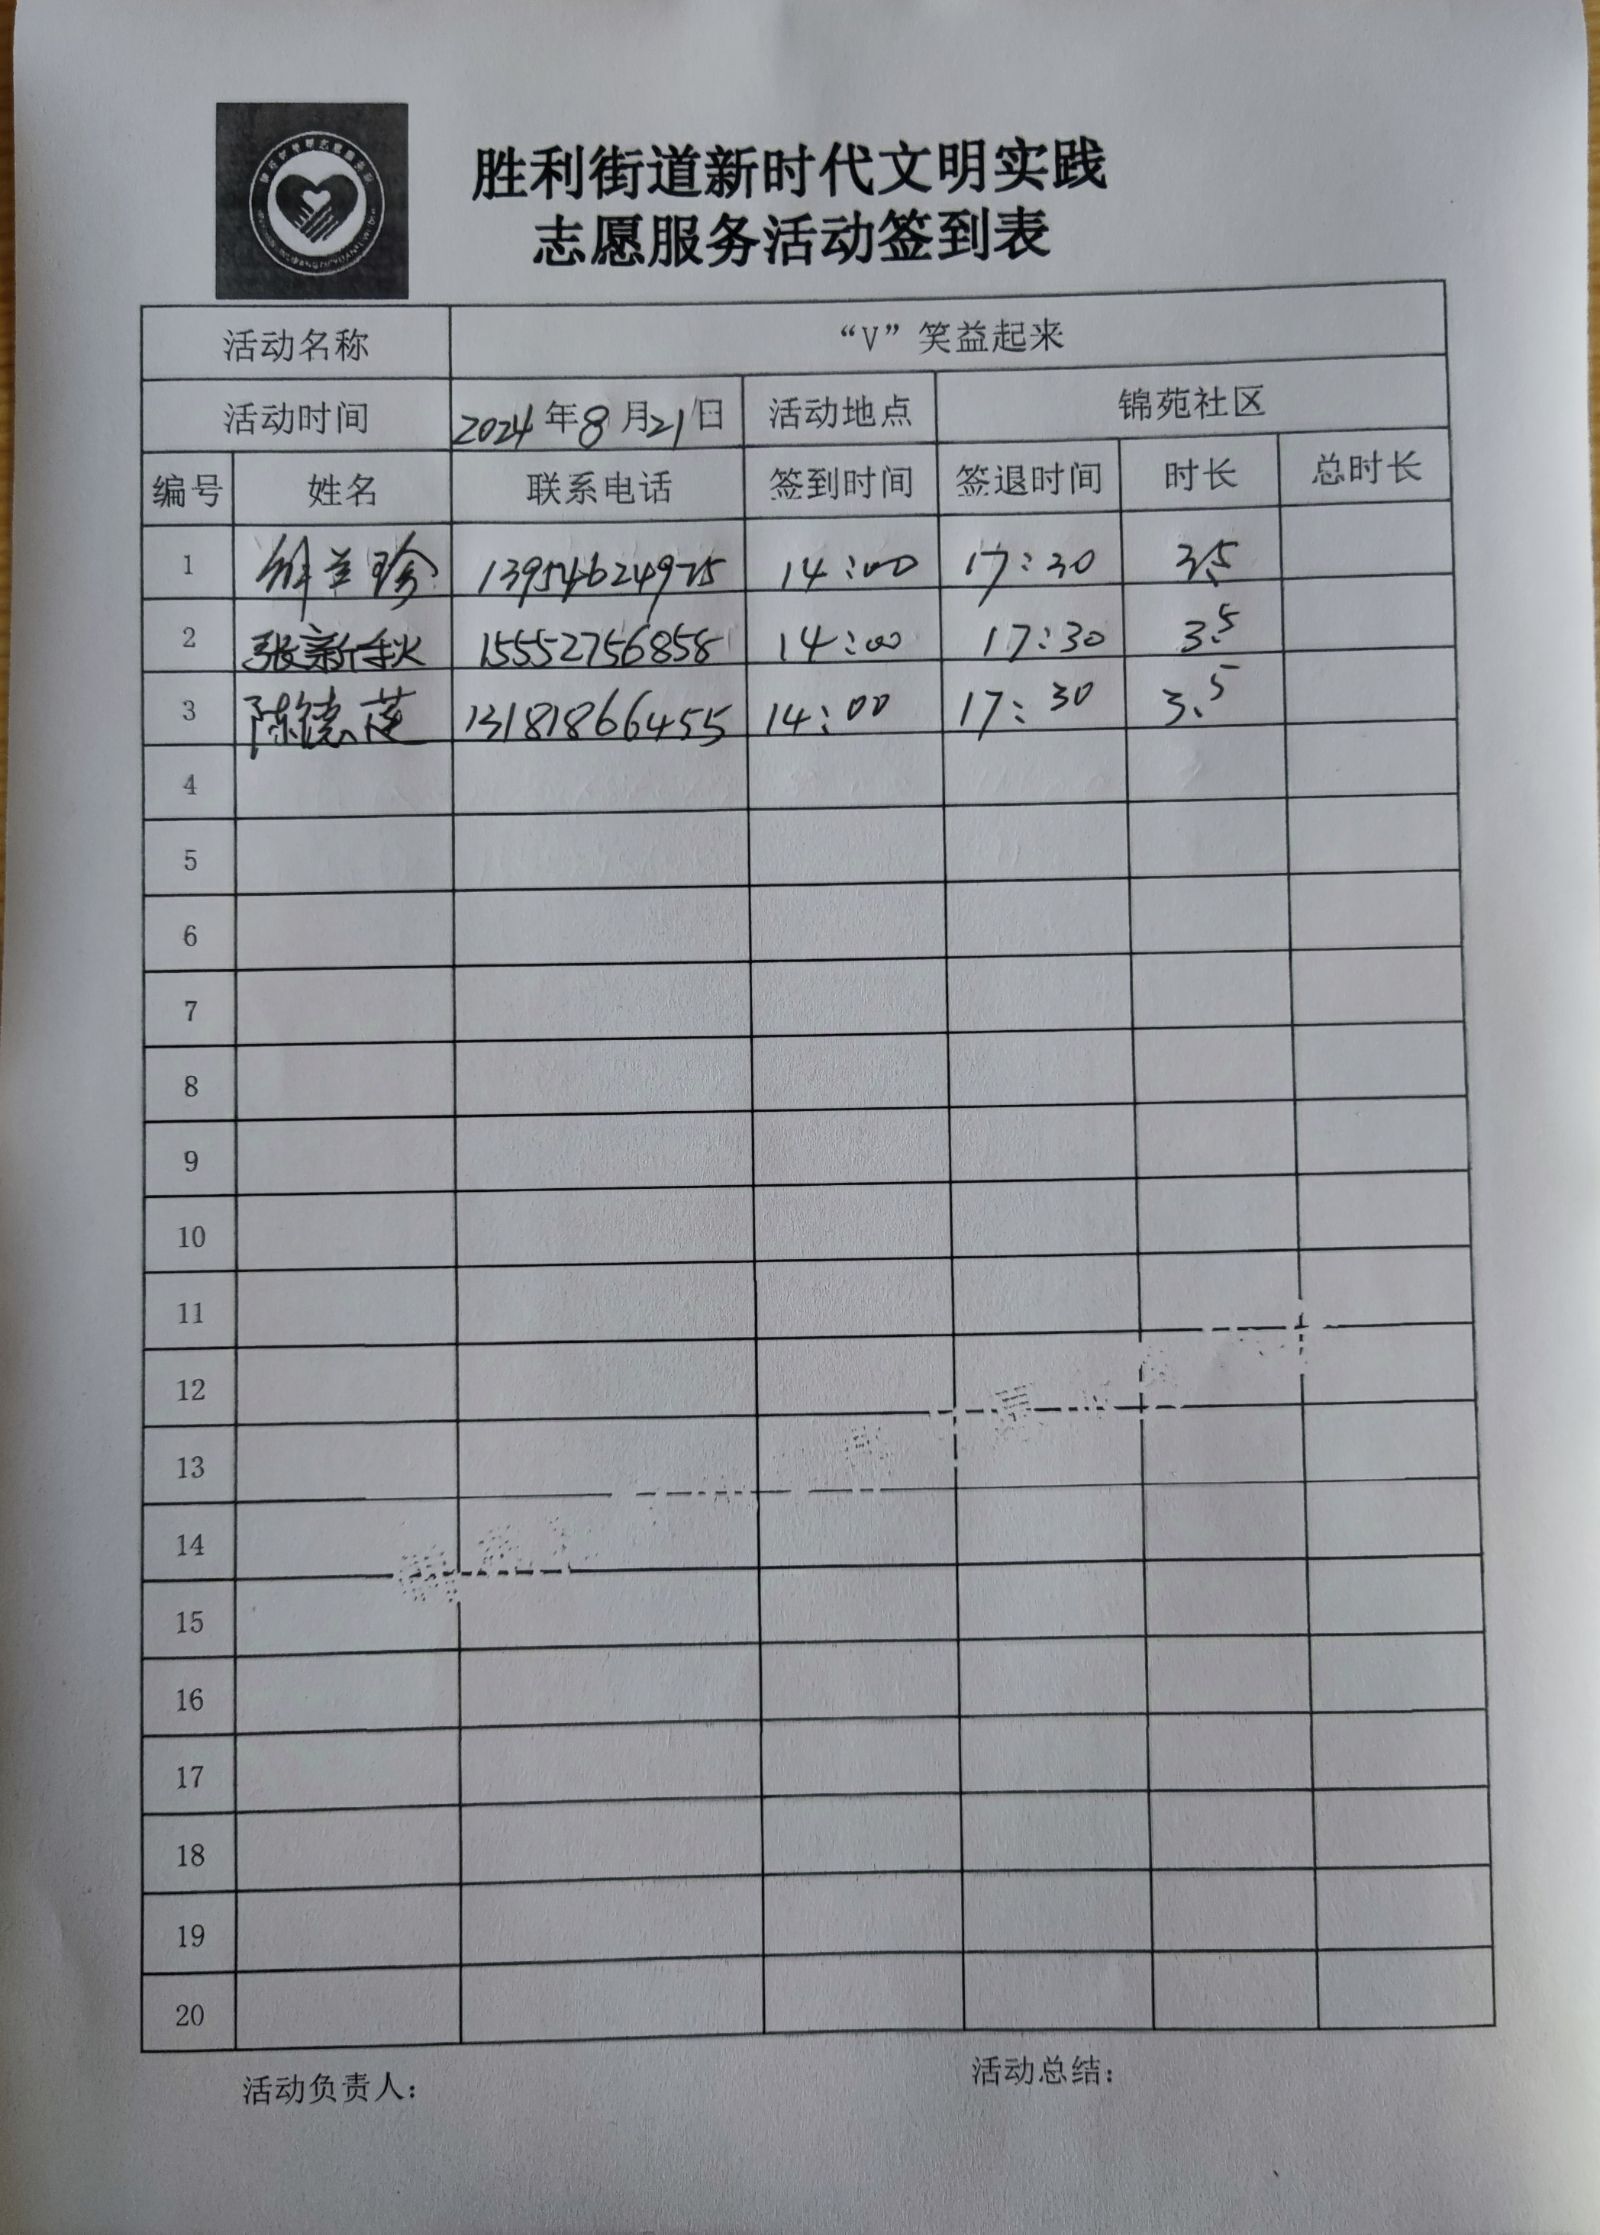 胜利街道新时代文明实践
志愿服务活动签到表
活动名称 “V”笑益起来
活动时间 2024年8月21日 活动地点 锦苑社区
编号 姓名 联系电话 签到时间 签退时间 时长 总时长
1 解兰珍 13954624975 14:00 17:30 3.5
2 张新秋 15552756858 14:00 17:30 3.5
3 陈德莲 13181866455 14:00 17:30 3.5
4
5
6
7
8
9
10
11
12
13
14
15
16
17
18
19
20
活动负责人: 活动总结: